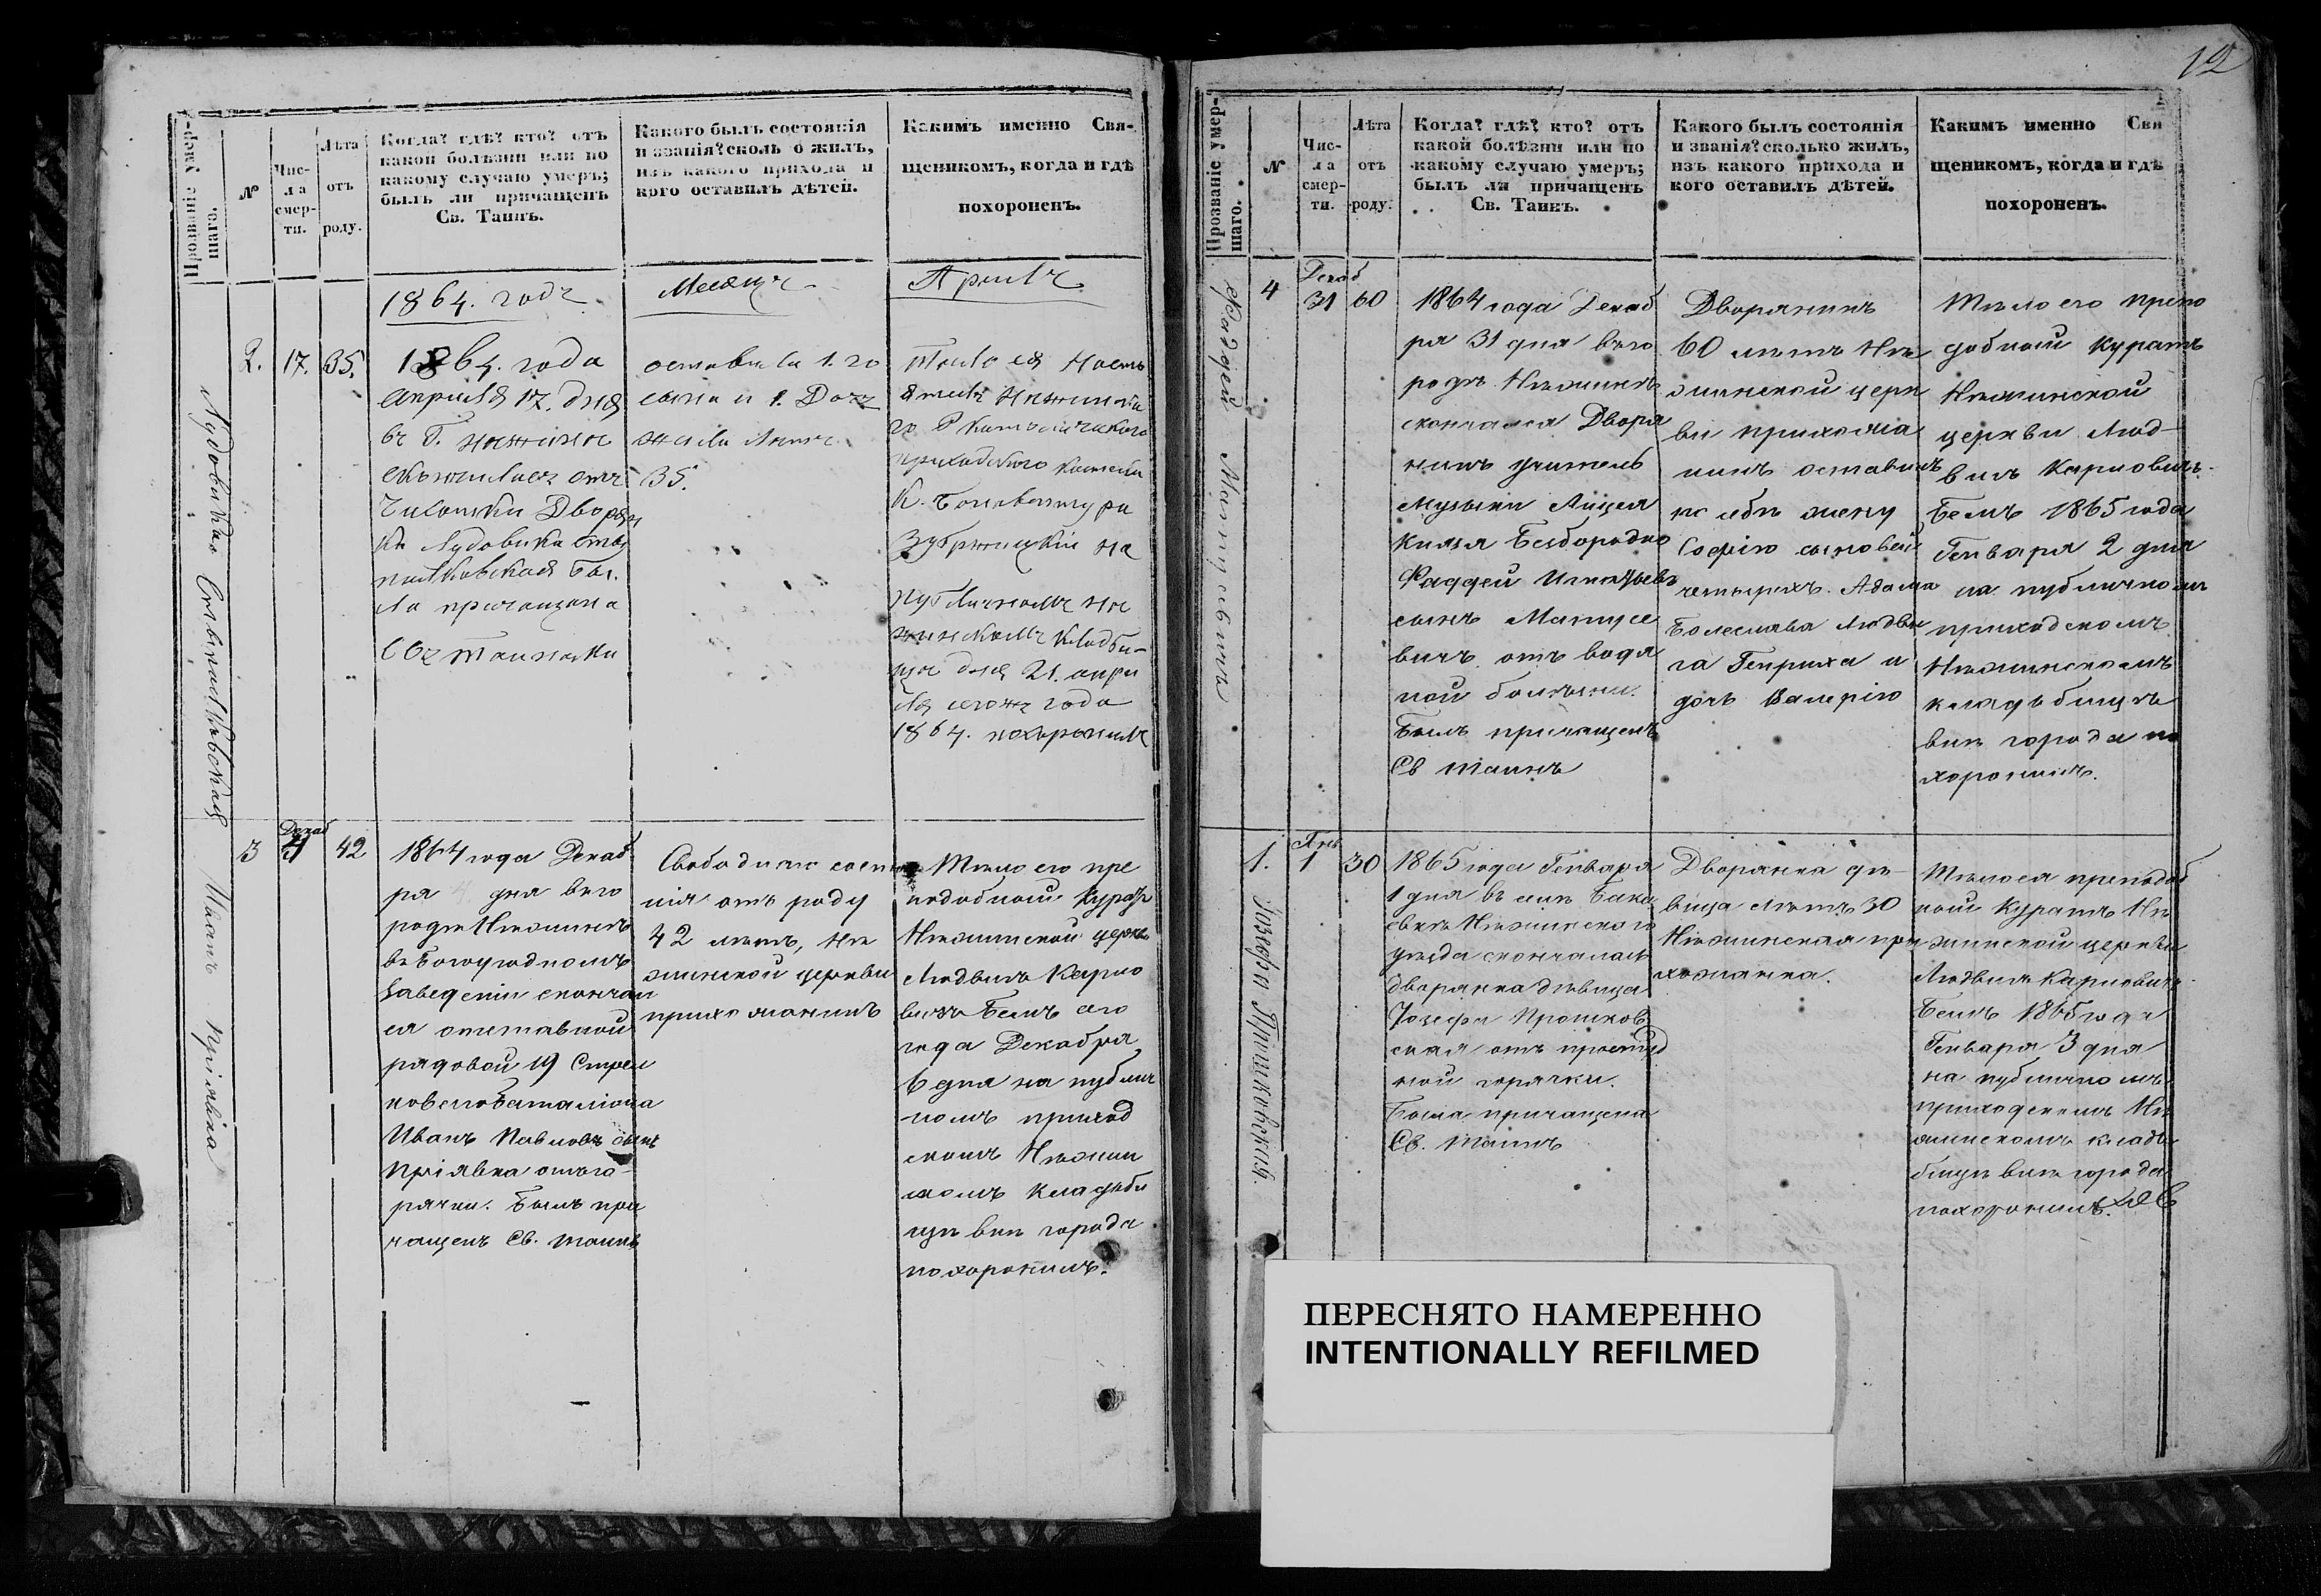 12
Прозваніе умер-
шаго.
№
Чис-
ла
смер-
ти.
Лѣта
отъ
роду.
Когда? гдѣ? кто? отъ
какой болѣзни или по
какому случаю умеръ;
былъ ли причащенъ
Св. Таинъ.
Какого былъ состоянія
и званія? сколько жилъ,
изъ какого прихода и
кого оставилъ дѣтей.
Какимъ именно Свя-
щеникомъ, когда и гдѣ
похороненъ.
1864. годъ
Месяцъ
Априль
Лудовика
2.
17.
35.
1864. года
априля 17. дня
въ Г. нежине
отъ
Дворян
ка Лудовика
Бы.
ла причащена
Св таинами
оставила 1. го
сына и 1. Дочь
жила летъ
35.
Тело ея Насто
ятель
приходского
К. Бонавентура
на
публичномъ не
жинскомъ кладби-
ще дня 21. апри
ля сегожъ года
1864. похоронилъ
Иванъ Пріявка
3
Декаб
4
42
1864 года Декаб
ря 4 дня въ го
родѣ Нѣжинѣ
въ Богоугодномъ
заведеніи скончал
ся отставной
рядовой 19 Стрел
коваго Баталіона
Иванъ Павловъ сынъ
Пріявка отъ го-
рячки. Былъ при
чащенъ Св. таинъ
Свободнаго состоя
нія отъ роду
42 лѣтъ, Нѣ
жинской церкви
прихожанинъ
Тѣло его пре
подобный Куратъ
Нѣжинской церкви
Людвигъ Карло
вичъ Бемъ сего
года Декабря
6 дня на публич
номъ приход
скомъ Нѣжин
скомъ кладьби
щѣ внѣ города
похоронилъ.
Прозваніе умер-
шаго.
№
Чис-
ла
смер-
ти.
Лѣта
отъ
роду.
Когда? гдѣ? кто? отъ
какой болѣзни или по
какому случаю умеръ;
былъ ли причащенъ
Св. Таинъ.
Какого былъ состоянія
и званія? сколько жилъ,
изъ какого прихода и
кого оставилъ дѣтей.
Какимъ именно Свя
щеникомъ, когда и гдѣ
похороненъ.
Фаддей Матусевичъ
4
Декаб
31
60
1864 года Декаб
ря 31 дня въ го
родѣ Нѣжинѣ
скончался Дворя
нинъ учитель
музыки Лицея
Князя Безбородко
Фаддей Игнатьевъ
сынъ Матусе
вичъ отъ водя
ной болѣзни.
Былъ причащенъ
Св таинъ
Дворянинъ
60 лѣтъ Нѣ
жинской церк
ви прихожа
нинъ оставилъ
по себѣ жену
Софію сыновей
четырехъ. Адама
Болеслава Людви
га Генриха и
дочь Валерію
Тѣло его препо
добный Куратъ
Нѣжинской
церкви Люд-
вигъ Карловичъ
Бемъ 1865 года
Генваря 2 дня
на публичномъ
приходскомъ
Нѣжинскомъ
кладьбищѣ
внѣ города по
хоронилъ.
Іозефа Прошковская.
1.
Янв
1
30
1865 года Генваря
1 дня въ
Нѣжинского
уѣзда скончалась
дворянка дѣвица
Іозефа Прошков
ская отъ простуд
ной горячки.
Была причащена
Св. Таинъ
Дворянка дѣ-
вица лѣтъ 30
Нѣжинская при
хожанка.
Тѣло ея преподоб
ный Куратъ Нѣ
жинской церкви
Людвигъ Карловичъ
Бемъ 1865 года
Генваря 3 дня
на публичномъ
приходскомъ Нѣ
жинскомъ кладь
бищѣ внѣ города
похоронилъ.
ПЕРЕСНЯТО НАМЕРЕННО
INTENTIONALLY REFILMED